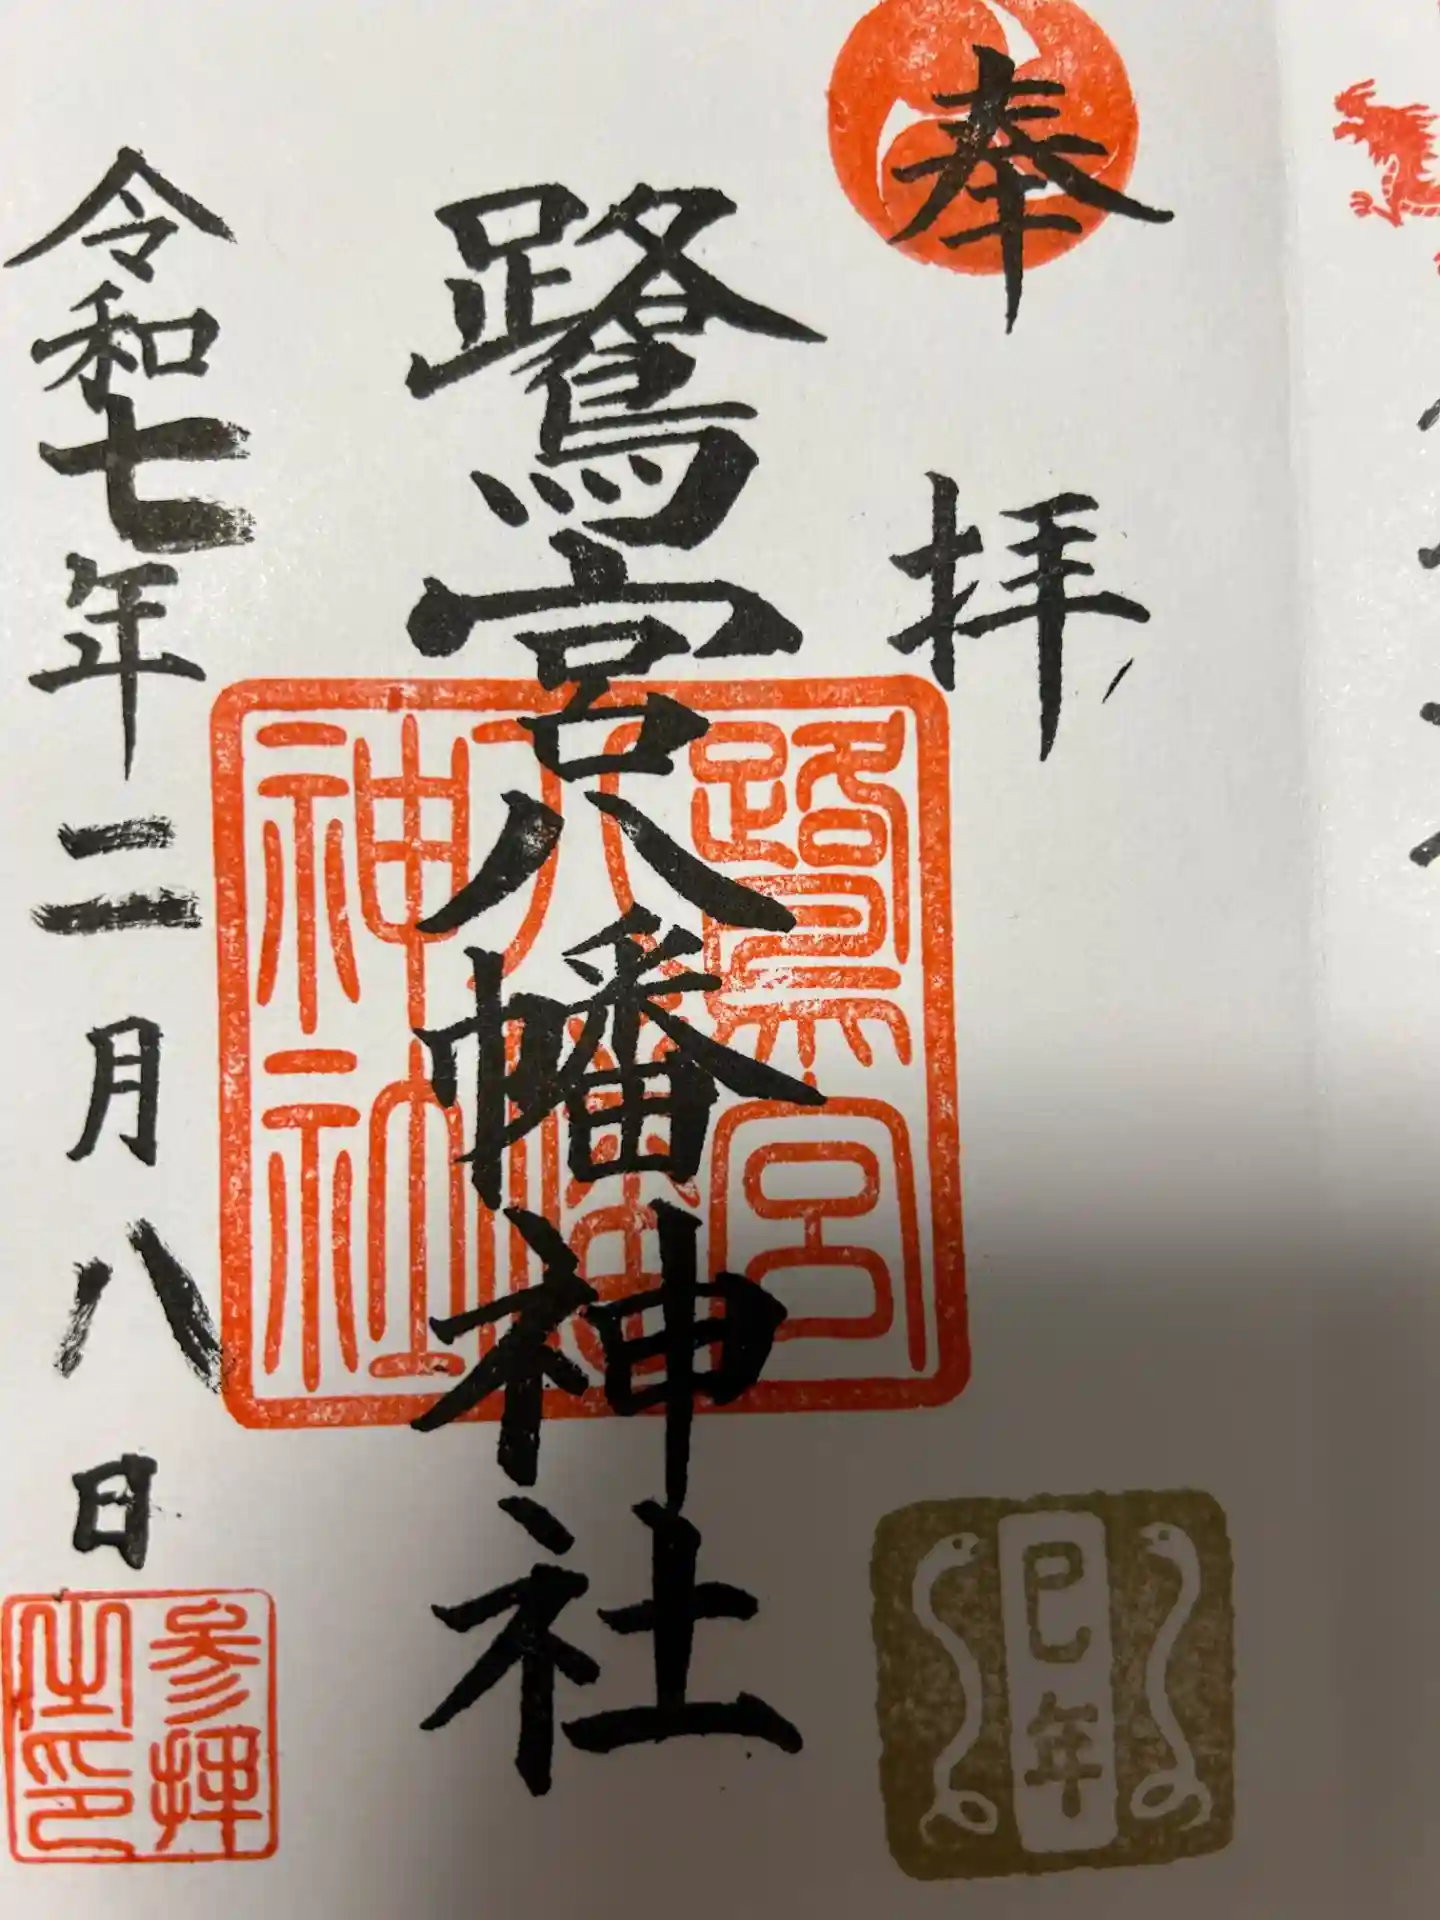 奉拝
鷺宮八幡神社
令和七年二月八日
鷺宮
八幡
神社
巳年
参拝
之印